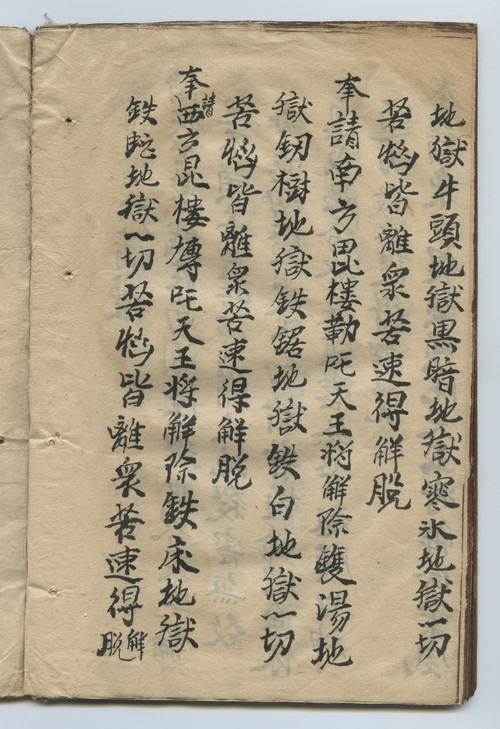 地獄牛頭地獄黑暗地獄寒氷地獄一切
苦惱皆離衆苦速得解脫
奉請南方毘樓勒吒天王將解除鑊湯地
獄釼樹地獄鉄鋸地獄鉄白地獄一切
苦惱皆離衆苦速得解脫
奉請西方昆樓博吒天王將解除鉄床地獄
鉄蛇地獄一切苦惱皆離衆苦速得解脫